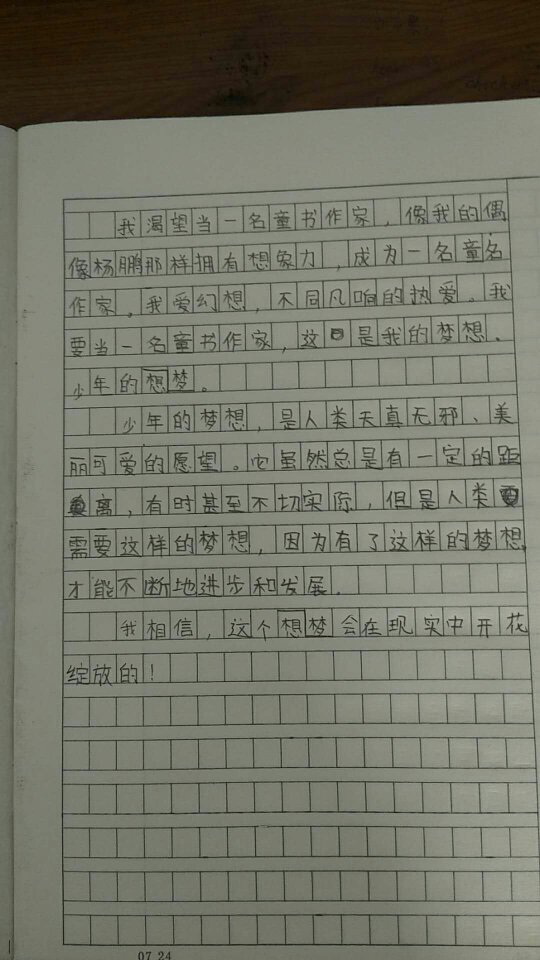 我渴望当一名童书作家，像我的偶
像杨鹏那样拥有想象力，成为一名童名
作家。我爱幻想，不同凡响的热爱。我
要当一名童书作家，这是我的梦想、
少年的想梦。
少年的梦想，是人类天真无邪、美
丽可爱的愿望。它虽然总是有一定的距
离，有时甚至不切实际，但是人类
需要这样的梦想，因为有了这样的梦想，
才能不断地进步和发展。
我相信，这个想梦会在现实中开花
绽放的！
07.24